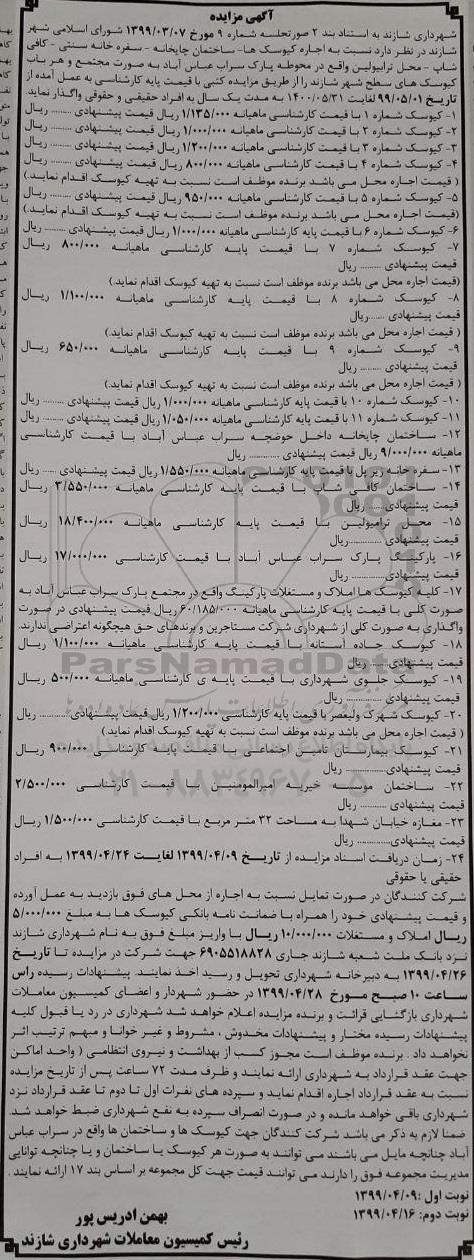 آگهی مزایده
شهرداری شازند به استناد بند ۲ صورتجلسه شماره ۹ مورخ ۱۳۹۹/۰۳/۰۷ شورای اسلامی شهر
شازند در نظر دارد نسبت به اجاره کیوسک ها- ساختمان چایخانه - سفره خانه سنتی - کافی
شاپ - محل ترامپولین واقع در محوطه پارک سراب عباس آباد به صورت مجتمع و هر باب
کیوسک های سطح شهر شازند را از طریق مزایده کتبی با قیمت پایه کارشناسی به عمل آمده از
تاریخ ۹۹/۰۵/۰۱ لغایت ۱۴۰۰/۰۵/۳۱ به مدت یک سال به افراد حقیقی و حقوقی واگذار نماید
۱- کیوسک شماره ۱ با قیمت کارشناسی ماهیانه ۱/۱۳۵/۰۰۰ ریال قیمت پیشنهادی ........ ریال
۲- کیوسک شماره ۲ با قیمت کارشناسی ماهیانه ۱/۰۰۰/۰۰۰ ریال قیمت پیشنهادی ........ ریال
۳- کیوسک شماره ۳ با قیمت کارشناسی ماهیانه ۱/۲۰۰/۰۰۰ ریال قیمت پیشنهادی ........ ریال
۴- کیوسک شماره ۴ با قیمت کارشناسی ماهیانه ۸۰۰/۰۰۰ ریال قیمت پیشنهادی ........ ریال
( قیمت اجاره محل می باشد برنده موظف است نسبت به تهیه کیوسک اقدام نمایـد.)
۵- کیوسک شماره ۵ با قیمت کارشناسی ماهیانه ۹۵۰/۰۰۰ ریال قیمت پیشنهادی ........ ریال
(قیمت اجاره محل می باشد برنده موظف است نسبت به تهیه کیوسک اقدام نمایـد.)
۶- کیوسک شماره ۶ با قیمت پایه کارشناسی ماهیانه ۱/۰۰۰/۰۰۰ ریال قیمت پیشنهادی....... ریال
۷- کیوسک شماره ۷ با قیمت پایه کارشناسی ماهیانه ۸۰۰/۰۰۰ ریال
قیمت پیشنهادی ........ ریال
(قیمت اجاره محل می باشد برنده موظف است نسبت به تهیه کیوسک اقدام نماید.)
۸- کیوسک شماره ۸ با قیمت پایه کارشناسی ماهیانه ۱/۱۰۰/۰۰۰ ریال
قیمت پیشنهادی .......ریال
( قیمت اجاره محل می باشد برنده موظف است نسبت به تهیه کیوسک اقدام نماید.)
۹- کیوسک شماره ۹ با قیمت پایه کارشناسی ماهیانه ۶۵۰/۰۰۰ ریال
قیمت پیشنهادی ........ ریال
( قیمت اجاره محل می باشد برنده موظف است نسبت به تهیه کیوسک اقدام نماید.)
۱۰- کیوسک شماره ۱۰ با قیمت پایه کارشناسی ماهیانه ۱/۰۰۰/۰۰۰ ریال قیمت پیشنهادی ........ ریال
۱۱- کیوسک شماره ۱۱ با قیمت پایه کارشناسی ماهیانه ۱/۰۵۰/۰۰۰ ریال قیمت پیشنهادی ........ ریال
۱۲- ساختمان چایخانه داخل حوضچه سراب عباس آباد با قیمت کارشناسی
ماهیانه ۹/۰۰۰/۰۰۰ ریال قیمت پیشنهادی ............ ریال
۱۳- سفره خانه زیر پل با قیمت پایه کارشناسی ماهیانه ۱/۵۵۰/۰۰۰ ریال قیمت پیشنهادی ..... ریال
۱۴- ساختمان کافی شاپ با قیمت پایه کارشناسی ماهیانه ۳/۵۵۰/۰۰۰ ریال
قیمت پیشنهادی...... ریال
۱۵- محل ترامپولین با قیمت پایه کارشناسی ماهیانه ۱۸/۴۰۰/۰۰۰ ریال
قیمت پیشنهادی.............ریال
۱۶- پارکینگ پارک سراب عباس آباد با قیمت کارشناسی ۱۷/۰۰۰/۰۰۰ ریال
قیمت پیشنهادی............ ریال
۱۷- کلیه کیوسک ها املاک و مستغلات پارکینگ واقع در مجتمع پارک سراب عباس آباد به
صورت کلی با قیمت پایه کارشناسی ماهیانه ۶۰/۱۸۵/۰۰۰ ریال قیمت پیشنهادی در صورت
واگذاری به صورت کلی از شهرداری شرکت مستاجرین و برندهای حق هیچگونه اعتراضی ندارند.
۱۸- کیوسک جاده آستانه با قیمت پایه کارشناسی ماهیانه ۱/۱۰۰/۰۰۰ ریال
قیمت پیشنهادی....... ریال
۱۹- کیوسک جلوی شهرداری با قیمت پایه ی کارشناسی ماهیانه ۵۰۰/۰۰۰ ریال
قیمت پیشنهادی ............... ریال
۲۰- کیوسک شهرک ولیعصر با قیمت پایه کارشناسی ۱/۲۰۰/۰۰۰ ریال قیمت پیشنهادی........... ریال
( قیمت اجاره محل می باشد برنده موظف است نسبت به تهیه کیوسک اقدام نماید.)
۲۱- کیوسک بیمارستان تامین اجتماعی با قیمت پایه کارشناسی ۹۰۰/۰۰۰ ریال
قیمت پیشنهادی............... ریال
۲۲- ساختمان موسسه خیریه امیرالمومنین با قیمت کارشناسی ۲/۵۰۰/۰۰۰
قیمت پیشنهادی ........... ریال
۲۳- مغازه خیابان شهدا به مساحت ۳۲ متر مربع با قیمت کارشناسی ۱/۵۰۰/۰۰۰ ریال
قیمت پیشنهادی............. ریال
۲۴- زمان دریافت اسناد مزایده از تاریخ ۱۳۹۹/۰۴/۰۹ لغایت ۱۳۹۹/۰۴/۲۴ به افراد
حقیقی یا حقوقی
شرکت کنندگان در صورت تمایل نسبت به اجاره از محل های فوق بازدید به عمل آورده
و قیمت پیشنهادی خود را همراه با ضمانت نامه بانکی کیوسک ها به مبلغ ۵/۰۰۰/۰۰۰
ریال املاک و مستغلات ۱۰/۰۰۰/۰۰۰ ریال با واریز مبلغ فوق به نام شهرداری شازند
نزد بانک ملت شعبه شازند جاری ۶۹۰۵۵۱۸۸۲۸ جهت شرکت در مزایده تا تاریخ
۱۳۹۹/۰۴/۲۶ به دبیرخانه شهرداری تحویل و رسید اخذ نمایند. پیشنهادات رسیده راس
ساعت ۱۰ صبح مورخ ۱۳۹۹/۰۴/۲۸ در حضور شهردار و اعضای کمیسیون معاملات
شهرداری بازگشایی قرائت و برنده مزایده اعلام خواهد شد شهرداری در رد یا قبول کلیه
پیشنهادات رسیده مختار و پیشنهادات مخدوش ، مشروط و غیر خوانا و مبهم ترتیب اثر
نخواهد داد . برنده موظف است مجوز کسب از بهداشت و نیروی انتظامی ( واحد اماکن
جهت عقد قرارداد به شهرداری ارائه نمایند و ظرف مدت ۷۲ ساعت پس از تاریخ مزایده
نسبت به عقد قرارداد اجاره اقدام نماید و سپرده های نفرات اول تا دوم تا عقد قرارداد نزد
شهرداری باقی خواهد مانده و در صورت انصراف سپرده به نفع شهرداری ضبط خواهد شد.
ضمنا لازم به ذکر می باشد شرکت کنندگان جهت کیوسک ها و ساختمان ها واقع در سراب عباس
آباد چنانچه مایل می باشند می توانند به صورت هر کیوسک یا ساختمان و یا چنانچه توانایی
مدیریت مجموعه فوق را دارند می توانند قیمت جهت کل مجموعه بر اساس بند ۱۷ ارائه نمایند .
نوبت اول :۱۳۹۹/۰۴/۰۹
نوبت دوم: ۱۳۹۹/۰۴/۱۶
بهمن ادریس پور
رئیس کمیسیون معاملات شهرداری شازند
ParsNamadData